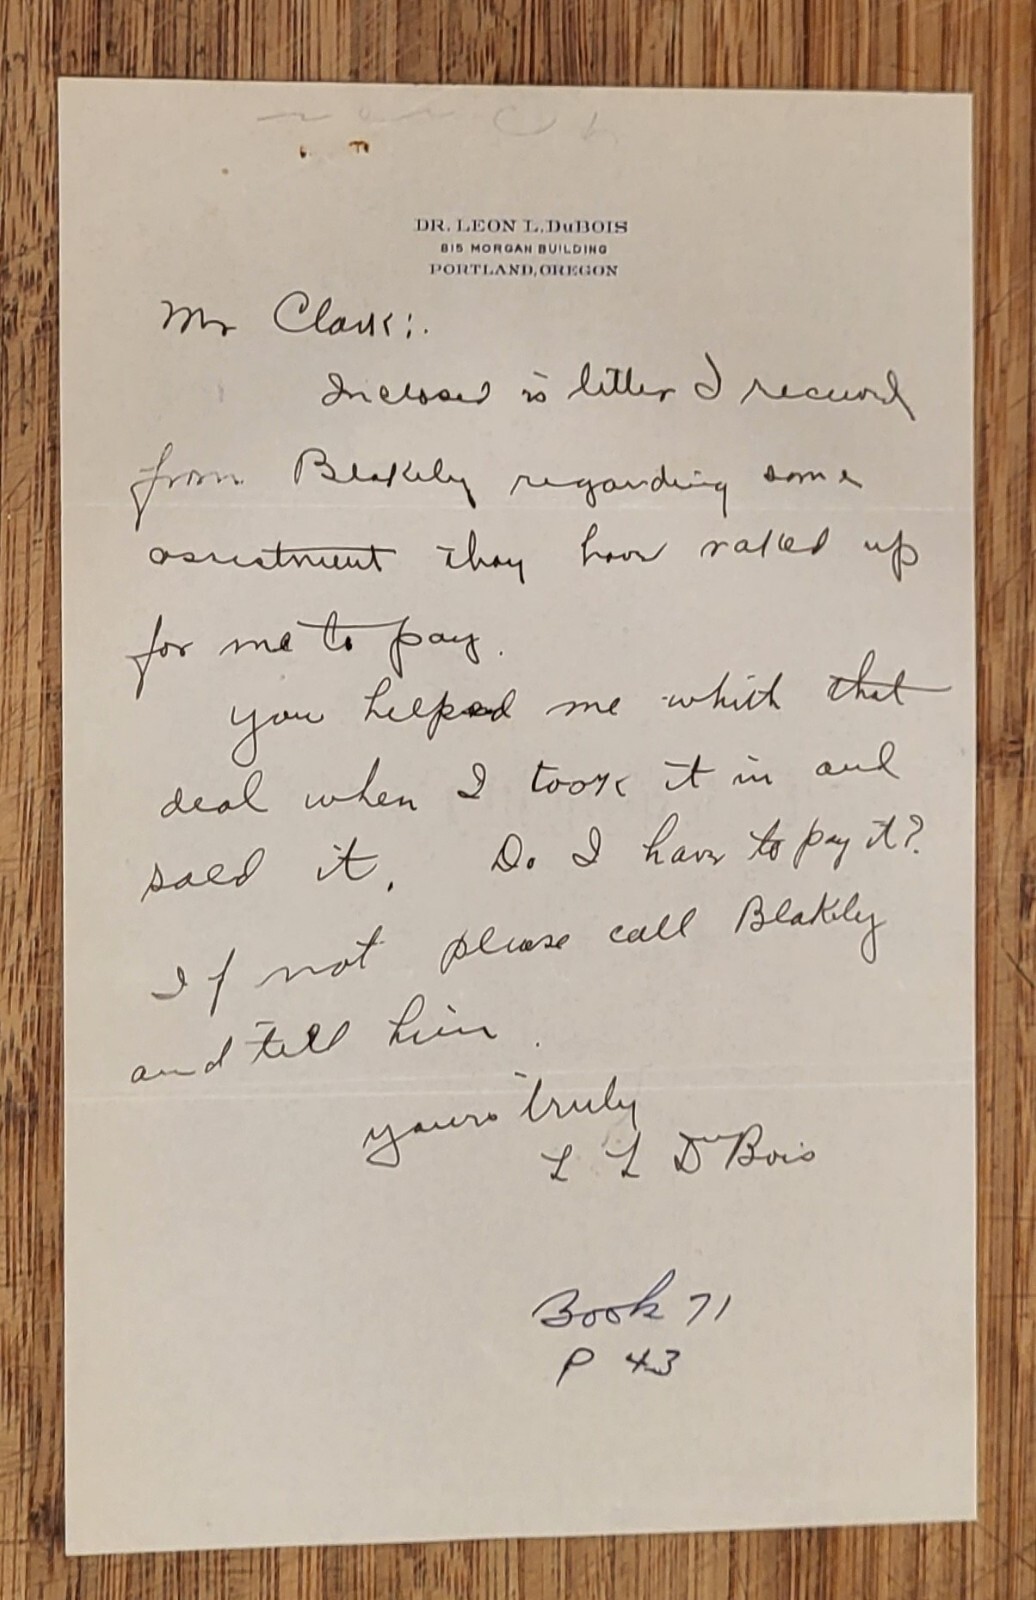 DR. LEON L. DuBOIS
815 MORGAN BUILDING
PORTLAND, OREGON
Mr Clark:.
Inclosed is letter I recieved
from Blakely regarding some
assestment they have raked up
for me to pay.
you helped me whith that
deal when I took it in and
sold it. Do I have to pay it?
If not please call Blakely
and tell him.
yours truly
L L DuBois
Book 71
P 43